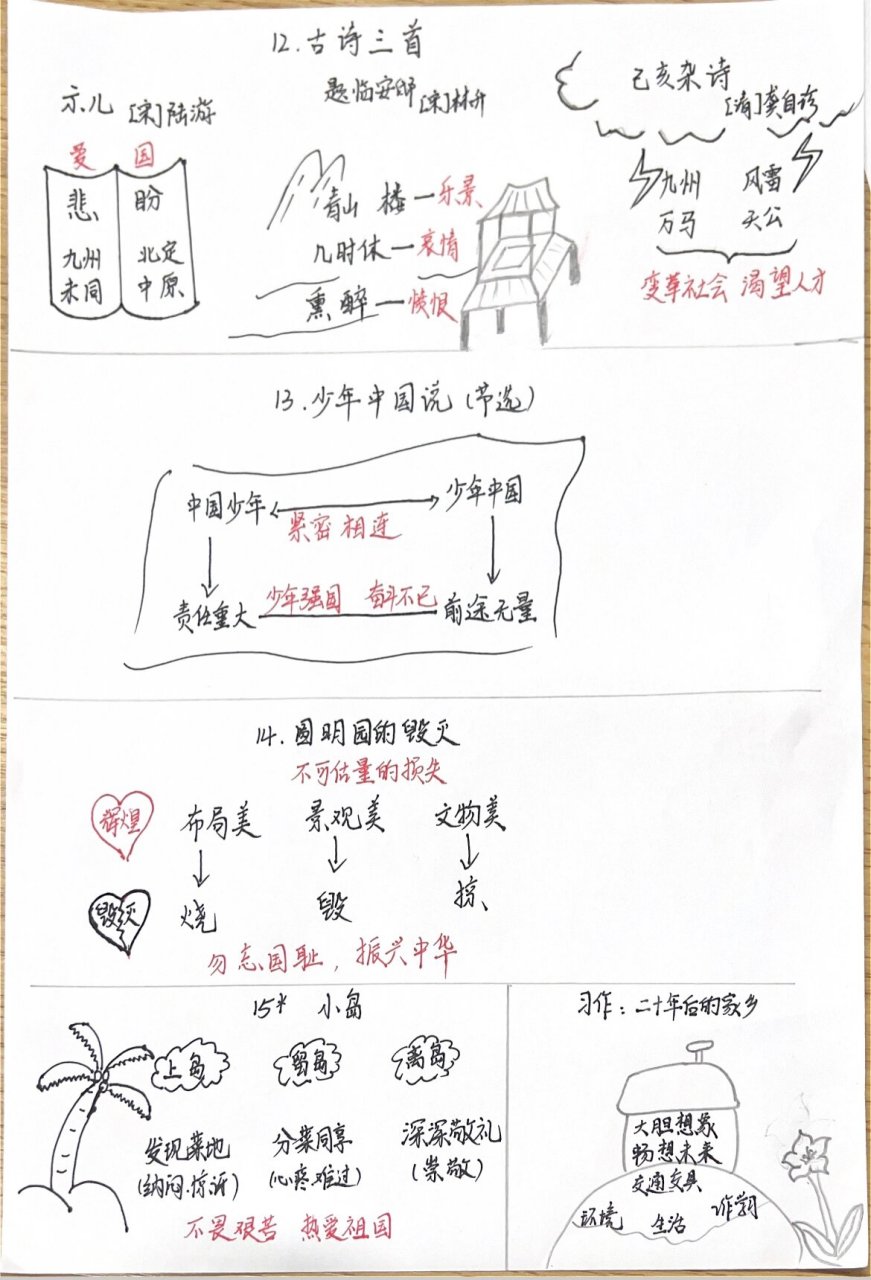 12.古诗三首
示儿 [宋]陆游
爱国
悲 盼
九州 北定
未同 中原
题临安邸 [宋]林升
青山 楼—乐景
几时休—哀情
熏 醉—愤恨
己亥杂诗
[清]龚自珍
九州 风雷
万马 天公
变革社会 渴望人才
13.少年中国说(节选)
中国少年 少年中国
紧密相连
少年强国 奋斗不已
责任重大 前途无量
14.圆明园的毁灭
不可估量的损失
辉煌 布局美 景观美 文物美
毁灭 烧 毁 掠
勿忘国耻,振兴中华
15* 小岛
上岛 留岛 离岛
发现菜地 分菜同享 深深敬礼
(纳闷.惊讶) (心疼.难过) (崇敬)
不畏艰苦 热爱祖国
习作:二十年后的家乡
大胆想象
畅想未来
交通
环境 生活